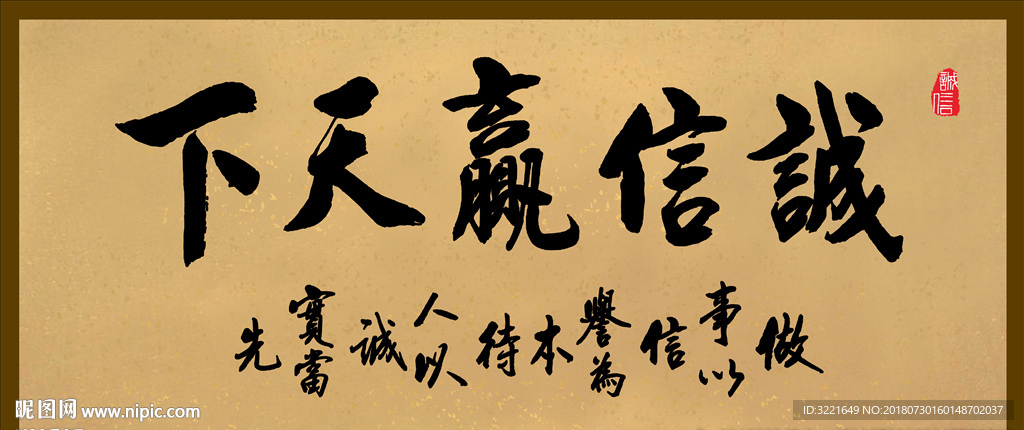 誠信贏天下
誠信
做事以信譽為本待人以誠實當先
昵图网 www.nipic.com
ID:3221649 NO:20180730160148702037